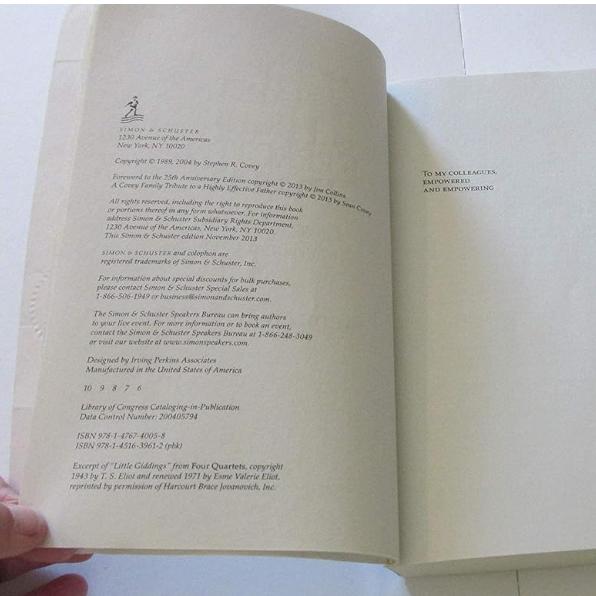 SIMON & SCHUSTER
1230 Avenue of the Americas
New York, NY 10020
Copyright © 1989, 2004 by Stephen R. Covey
Foreword to the 25th Anniversary Edition copyright © 2013 by Jim Collins
A Covey Family Tribute to a Highly Effective Father copyright © 2013 by Sean Covey
All rights reserved, including the right to reproduce this book
or portions thereof in any form whatsoever. For information
address Simon & Schuster Subsidiary Rights Department,
1230 Avenue of the Americas, New York, NY 10020.
This Simon & Schuster edition November 2013
SIMON & SCHUSTER and colophon are
registered trademarks of Simon & Schuster, Inc.
For information about special discounts for bulk purchases,
please contact Simon & Schuster Special Sales at
1-866-506-1949 or business@simonandschuster.com.
The Simon & Schuster Speakers Bureau can bring authors
to your live event. For more information or to book an event,
contact the Simon & Schuster Speakers Bureau at 1-866-248-3049
or visit our website at www.simonspeakers.com.
Designed by Irving Perkins Associates
Manufactured in the United States of America
10 9 8 7 6
Library of Congress Cataloging-in-Publication
Data Control Number: 200405794
ISBN 978-1-4767-4005-8
ISBN 978-1-4516-3961-2 (pbk)
Excerpt of "Little Giddings" from Four Quartets, copyright
1943 by T. S. Eliot and renewed 1971 by Esme Valerie Eliot,
reprinted by permission of Harcourt Brace Jovanovich, Inc.
TO MY COLLEAGUES,
EMPOWERED
AND EMPOWERING